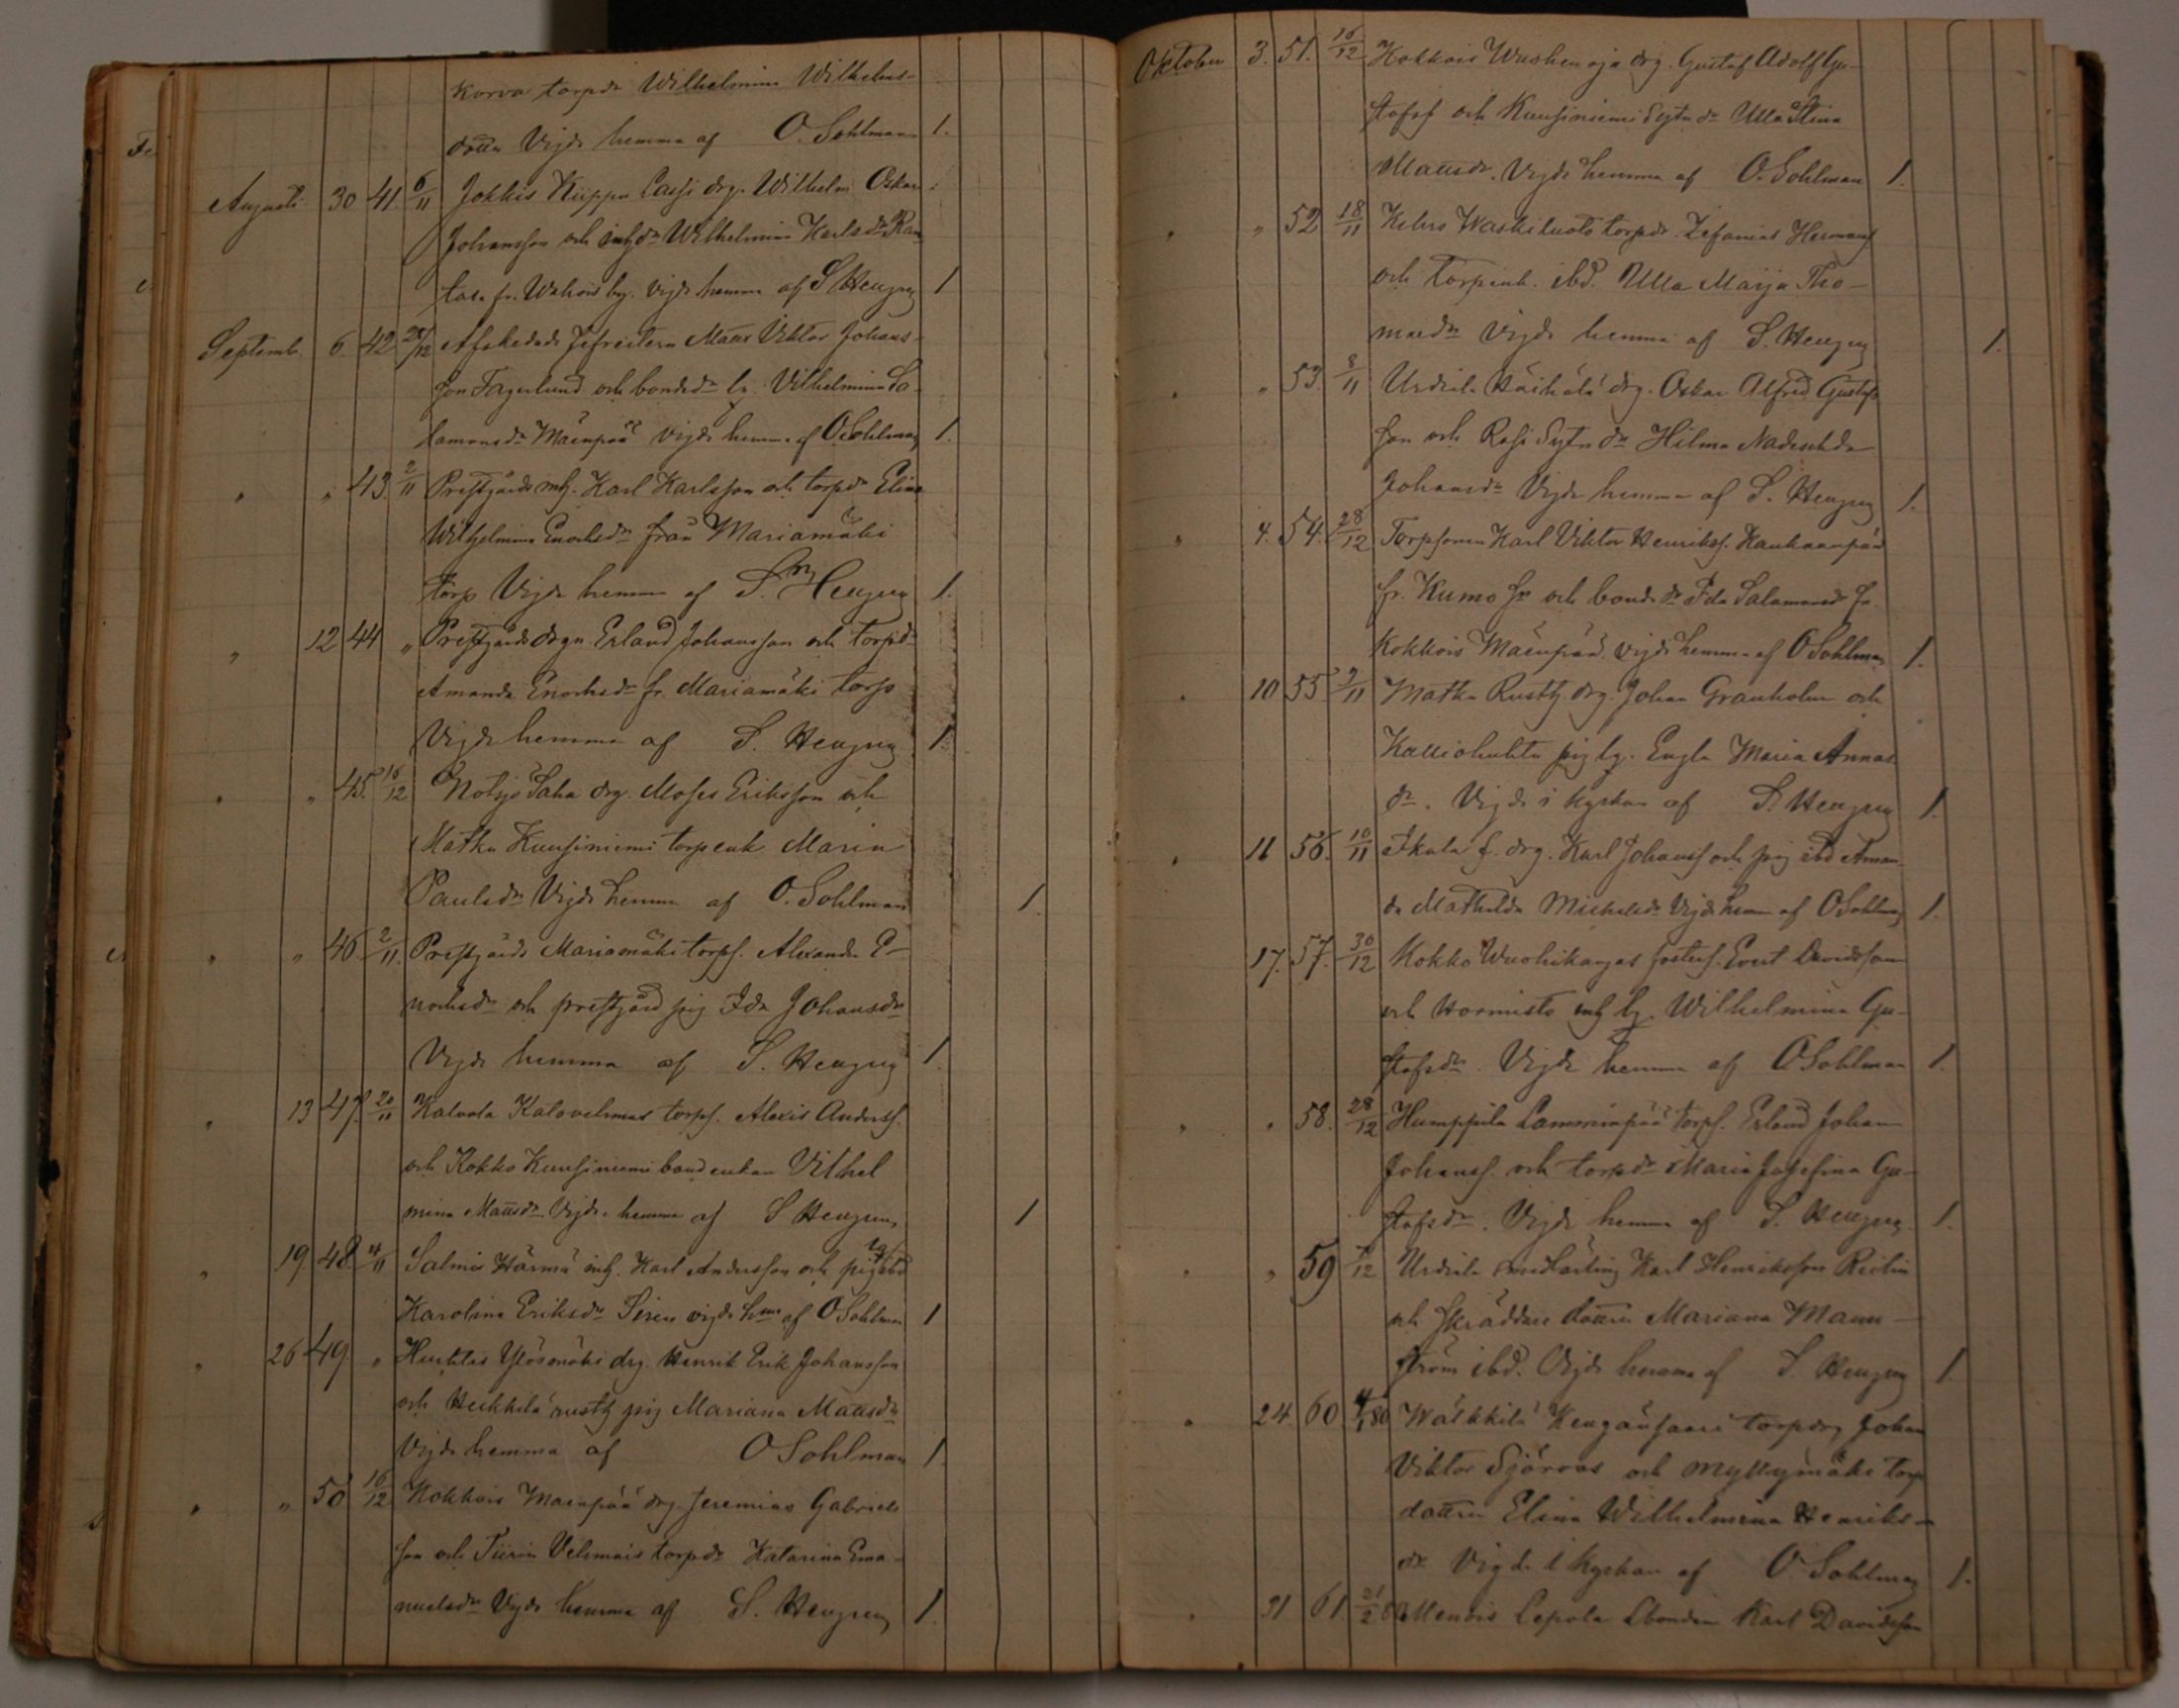 Korva torpdr Wilhelmina Wilhelms-
dotter Vigde hemma af O. Sohlman 1.
Augusti 30 41. 6/11 Jokkis Kiippu Cassi drg. Wilhelm Oskar
Johansson och inhdr Wilhelmina Karlsdr Ran
tala fr. by. Vigde hemma af S Hengrg 1
Septemb. 6 42 /12 Afskedade Maur Viktor Johans-
son Fagerlund och bondedr lg. Vilhelmina Sa-
lamonsdr Mäenpää Vigde hemma af O Sohlman 1.
" " 43 2/11 Prestgårds inh. Karl Karlsson och torpdr Elina
Wilhelmina Enochsdr från Mariamäki
torp Vigde hemma af S. Hengrg 1.
" 12 44 " Prestgårds drgn Erland Johansson och torpdr
Amanda Enochsdr fr. Mariamäki torp
Vigde hemma af S. Hengrg 1.
" " 45. 16/12 Notsjö Saha drg. Moses Eriksson och
Matku Kuusiniemi torpenk Maria
Paulsdr Vigde hemma af O. Sohlman 1.
" " 46 2/11. Prestgårds Mariamäki torps. Alexander E-
nochsdr och prestgård pig Ida Johansdr
Vigde hemma af S. Hengrg 1
" 13 47. 20/11 Kalvola Katovelmas torps. Alexis Anderss.
och Kokko Kuusiniemi bondenkan Vilhel
mina Matsdr. Vigde hemma af S Hengren 1
" 19 48. 4/11 Salmis Härmä inh. Karl Andersson och pig lg ibd
Karolina Eriksdr Siren vigde hma af O Sohlman 1
" 26 49 " Huhtis Ylösmäki drg. Henrik Erik Johansson
och Heikkilä rusth pig Mariana Matsdr
Vigde hemma af O Sohlman 1.
" " 50 16/12 Kokkois Mäenpää drg. Jeremias Gabriels
son och Tiirin Velmais torpdr Katarina Ema-
nuelsdr Vigde hemma af S. Hengrg 1.
Oktober 3. 51. 16/12 Kokkois Wuohenoja drg. Gustaf Adolf Gu-
stafss och Kuusiniemi Sytndr Ulla Stina
Mausdr. Vigde hemma af O. Sohlman 1.
" " 52 18/11 Waskiluoto torpdr. Zefanias Hermanss
och torpink. ibd. Ulla Maija Tho-
masdr Vigde hemma af S. Hengrg 1.
" " 53. 8/11 Urdiala Häihälä drg. Oskar Alfred Gustafs
son och Rasi Sytndr Hilma Nadeschda
Johansdr Vigde hemma af S. Hengrg 1.
" 4. 54. 28/12 Torpsonen Karl Viktor Henrikss. Kankaanpää
fr. Kumo sn och bondedr Ida Salamonsdr fr.
Kokkois Mäenpää. Vigde hemma af O Sohlman 1.
" 10 55 9/11 Matku Rusth drg. Johan Granholm och
Kalliohuhta pig lg. Engla Maria Annas
dr. Vigde i kyrkan af S. Hengrg 1.
" 11 56. 10/11 Ikala f. drg. Karl Johanss och pig ibd Aman-
da Mathilda Michelsdr Vigde hemma af O Sohlman 1.
17. 57. 30/12 Kokko Wuohikangas fosters. Evert Davidsson
och Hormisto inh lg. Wilhelmina Gu-
stafsdr. Vigde hemma af O Sohlman 1.
" " 58. 28/12 Humppila Lamminpää torps. Erland Johan
Johanss. och torpdr Maria Josefina Gu-
stafsdr. Vigde hemma af S. Hengrg 1.
" " 59 /12 Urdiala smedlärling Karl Henriksson
och skräddare dottren Mariana Mann-
ström ibd. Vigde hemma af S. Hengrg 1
" 24. 60 4/1 80 Wäkkilä torpdrg Johan
Viktor Sjöroos och Myllymäki torp
dottren Elina Wilhelmina Henriks-
dr Vigde i kyrkan af O Sohlman 1.
" 31 61 21/2 80 Menois Lepola Lbonden Karl Davidsson